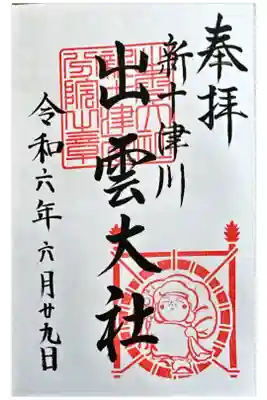 奉拝
新十津川
出雲大社
令和六年六月廿九日